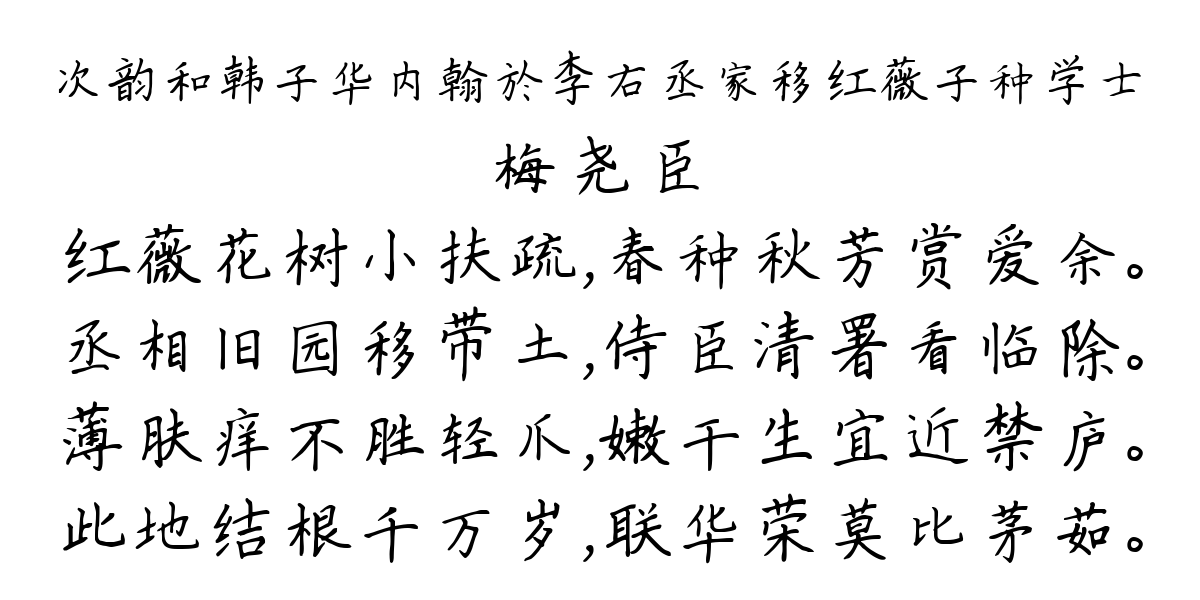 次韵和韩子华内翰於李右丞家移红薇子种学士
梅尧臣
红薇花树小扶疏,春种秋芳赏爱余。
丞相旧园移带土,侍臣清署看临除。
薄肤痒不胜轻爪,嫩干生宜近禁庐。
此地结根千万岁,联华荣莫比茅茹。